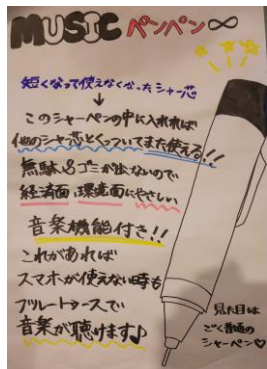 MUSIC ペンペン∞
短くなって使えなくなったシャー芯
↓
このシャーペンの中に入れれば
他のシャー芯とくっついてまた使える!!
無駄なゴミが出ないので
経済面、環境面にやさしい
音楽機能付き!!
これがあれば
スマホが使えない時も
ブルートゥースで
音楽が聴けます♪
見た目は
ごく普通の
シャーペン♡